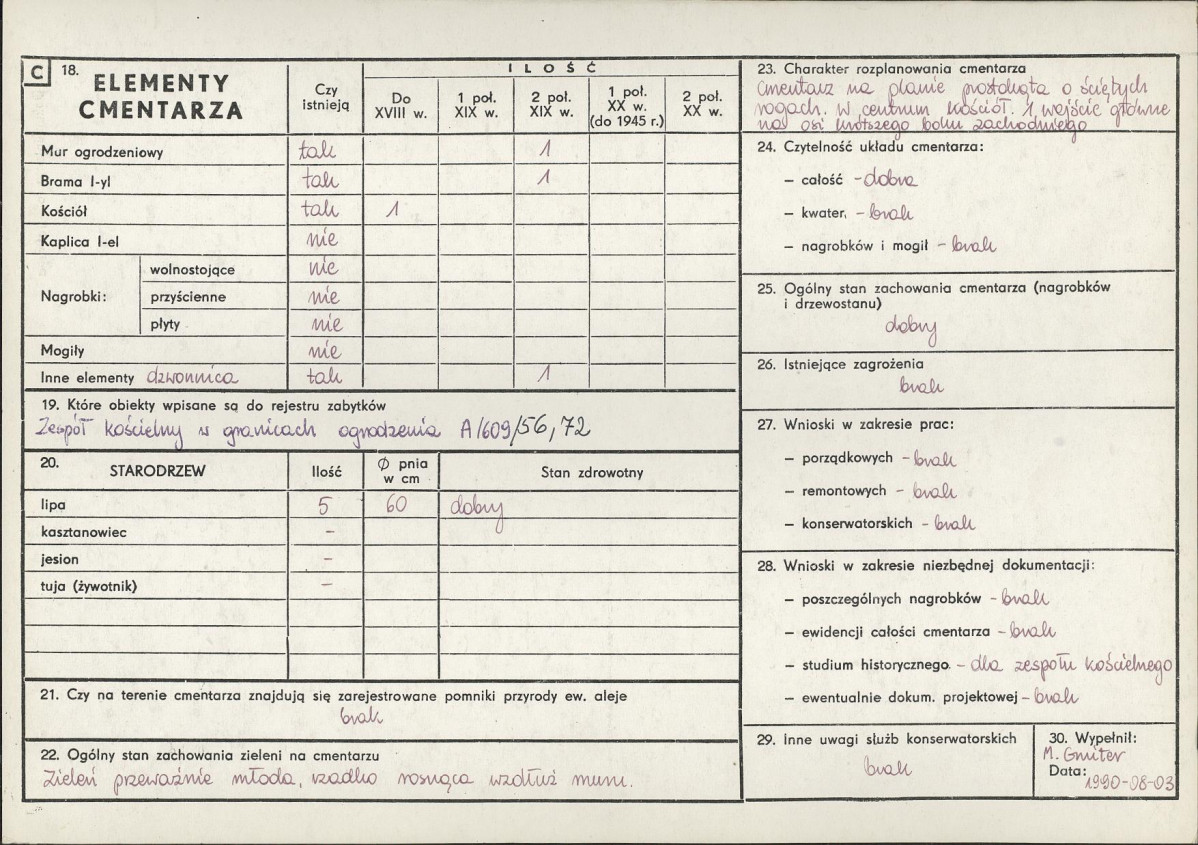 C 18. ELEMENTY CMENTARZA
Czy istnieją
ILOŚĆ
Do XVIII w.
1 poł. XIX w.
2 poł. XIX w.
1 poł. XX w. (do 1945 r.)
2 poł. XX w.
Mur ogrodzeniowy tak 1
Brama I-yl tak 1
Kościół tak 1
Kaplica I-el nie
Nagrobki:
wolnostojące nie
przyścienne nie
płyty nie
Mogiły nie
Inne elementy dzwonnica tak 1
19. Które obiekty wpisane są do rejestru zabytków
Zespół kościelny w granicach ogrodzenia A/609/56,72
20. STARODRZEW Ilość Ø pnia w cm Stan zdrowotny
lipa 5 60 dobry
kasztanowiec –
jesion –
tuja (żywotnik) –
21. Czy na terenie cmentarza znajdują się zarejestrowane pomniki przyrody ew. aleje
brak
22. Ogólny stan zachowania zieleni na cmentarzu
Zieleń przeważnie młoda, rzadko rosnąca wzdłuż muru.
23. Charakter rozplanowania cmentarza
cmentarz na planie prostokąta o ściętych
rogach. W centrum kościół. 1 wejście główne
na osi krótszego boku zachodniego
24. Czytelność układu cmentarza:
– całość – dobra
– kwater, – brak
– nagrobków i mogił – brak
25. Ogólny stan zachowania cmentarza (nagrobków
i drzewostanu)
dobry
26. Istniejące zagrożenia
brak
27. Wnioski w zakresie prac:
– porządkowych – brak
– remontowych – brak
– konserwatorskich – brak
28. Wnioski w zakresie niezbędnej dokumentacji:
– poszczególnych nagrobków – brak
– ewidencji całości cmentarza – brak
– studium historycznego – dla zespołu kościelnego
– ewentualnie dokum. projektowej – brak
29. Inne uwagi służb konserwatorskich
brak
30. Wypełnił:
M. Gmiter
Data:
1990-08-03